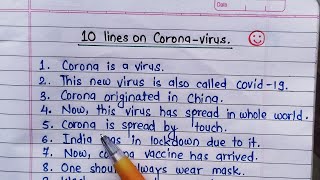 10 lines on Corona-virus.
1. Corona is a virus.
2. This new virus is also called covid-19.
3. Corona originated in China.
4. Now, this virus has spread in whole world.
5. Corona is spread by touch.
6. India was in lockdown due to it.
7. Now, corona vaccine has arrived.
8. One should always wear mask.
9.